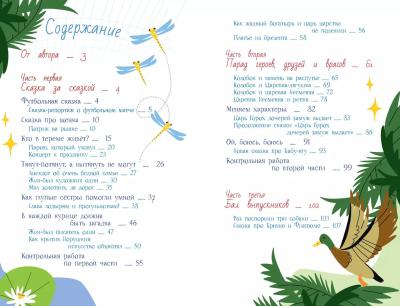 Содержание
От автора — 3
Часть первая
Сказка за сказкой — 4
Футбольная сказка ... 4
Сказка-репортаж о футбольном матче ... 5
Сказка про щенка ... 10
Патрик на рынке ... 10
Кто в тереме живёт? ... 15
Паром, который уехал ... 20
Концерт к празднику ... 23
Тянул-потянут, а вытянуть не могут ... 26
Анекдот об очень бедной семье ... 27
Жил-был художник один ... 30
Мал золотник, да дорог ... 35
Как глупые сёстры помогли умной ... 37
Слава лодырям и прогульщикам! ...
В каждой курице должна
быть загадка ... 46
Жил-был писатель один ... 47
Как критик Порушкин
искусство объяснял ... 50
Контрольная работа
по первой части ... 55
Как жадный богатырь и царь царства
не поделили ... 56
Платье на бретелях ... 58
Часть вторая
Парад героев, друзей и врагов — 62
Колобок и камень на распутье ... 65
Колобок и Царевна-лягушка ...
Колобок и царевна Несмеяна ... 72
Царевна Несмеяна и репка ... 78
Меняем характеры ... 82
Царь Горох дочерей замуж выдает ...
Продолжение сказки «Царь Горох
дочерей замуж выдает» ...
Ой, боюсь, боюсь ... 91
Новая сказка про Бабу-ягу ... 93
Контрольная работа
по второй части ... 99
Часть третья
Бал выпускников — 102
Раз поспорили три собаки ... 103
Сказка про Ерёмию и Фунтомию ... 104